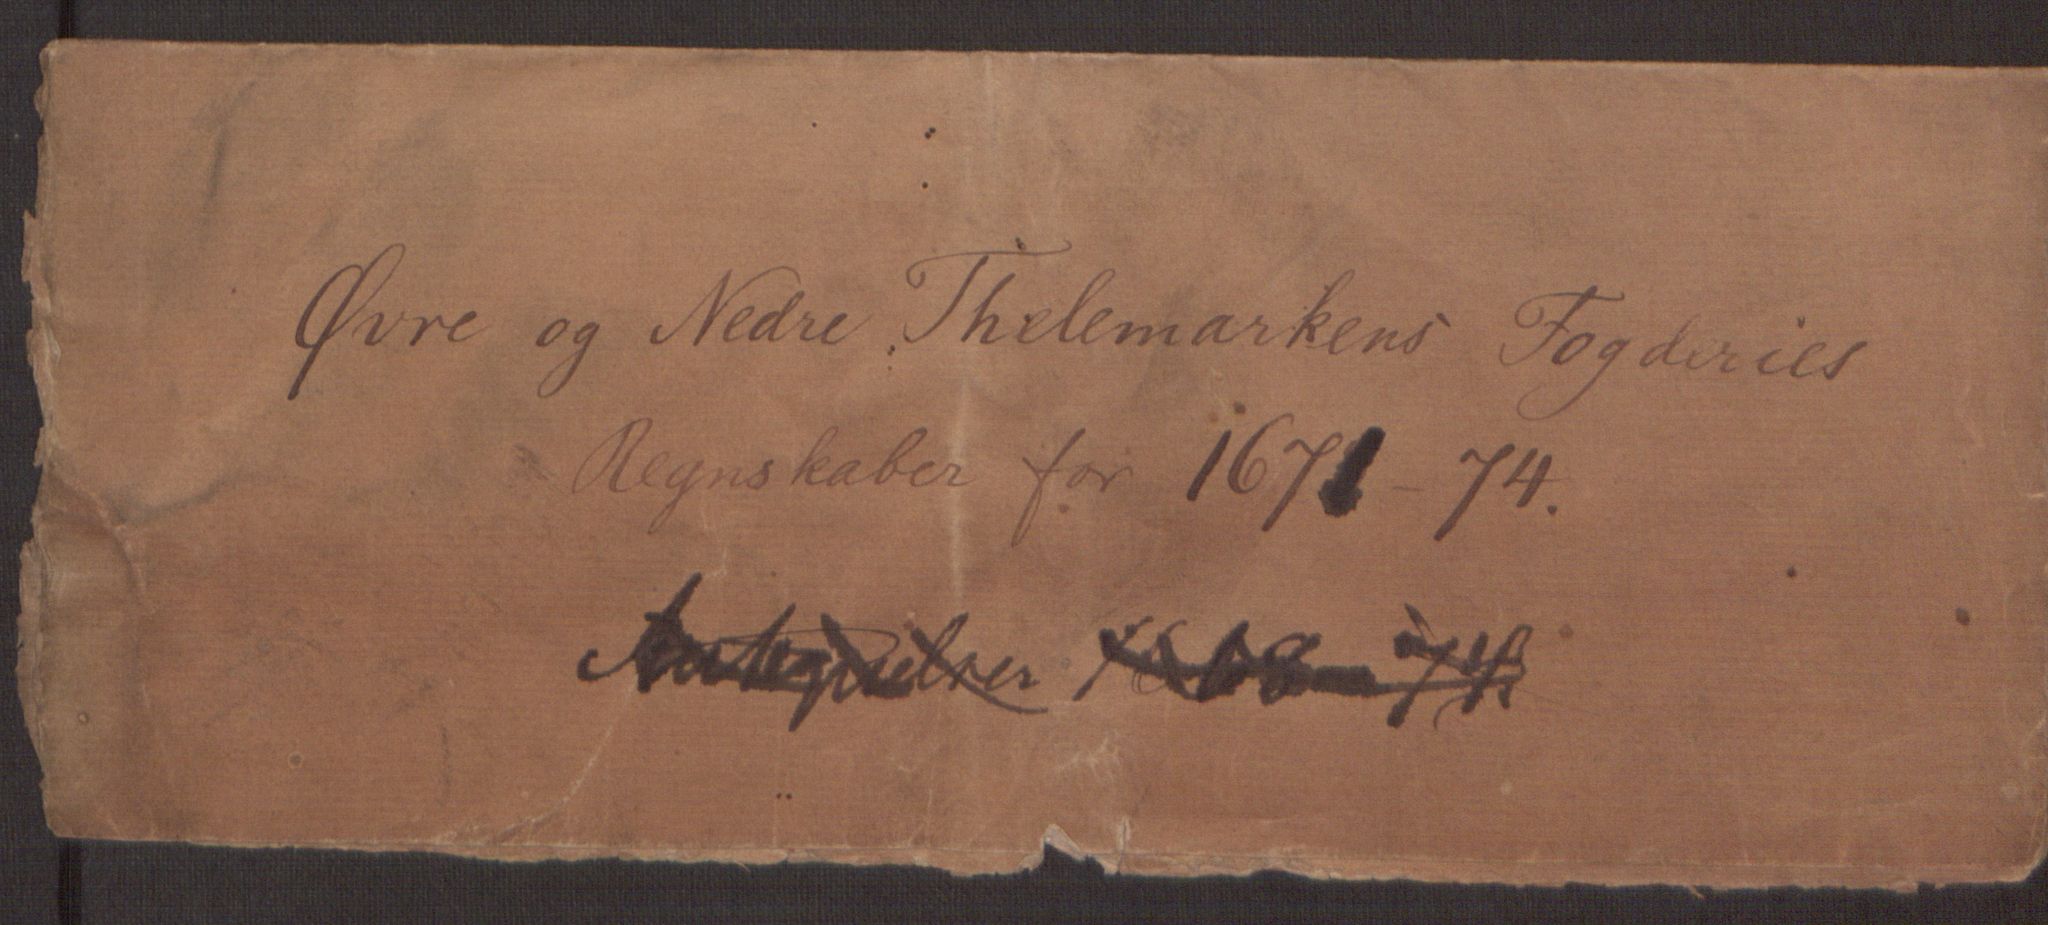 Øvre og Nedre Thelemarkens Fogderies
Regnskaber for 1671 – 74.
Antegnelser 1668 – 74.